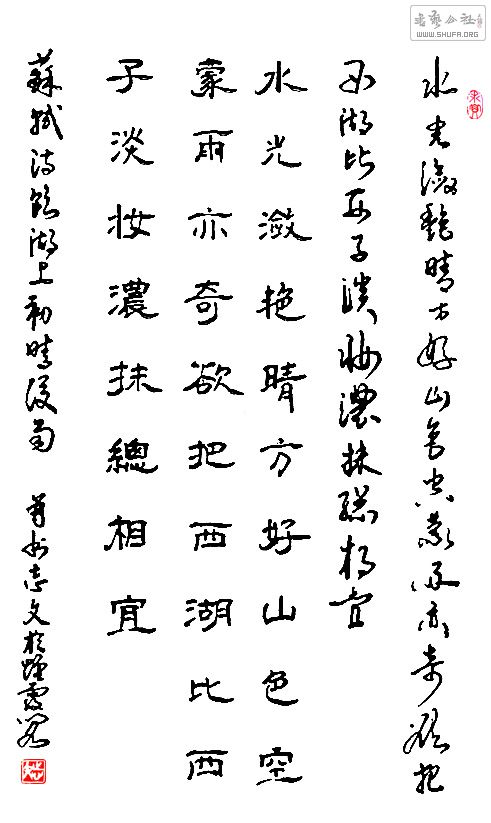 書藝公社
WWW.SHUFA.ORG
水光瀲艷晴方好山色空蒙雨亦奇欲把
西湖比西子淡妝濃抹總相宜
水光潋艳晴方好山色空
蒙雨亦奇欲把西湖比西
子淡妆濃抹總相宜
蘇軾詩飲湖上初晴後雨 州志文於煙霞